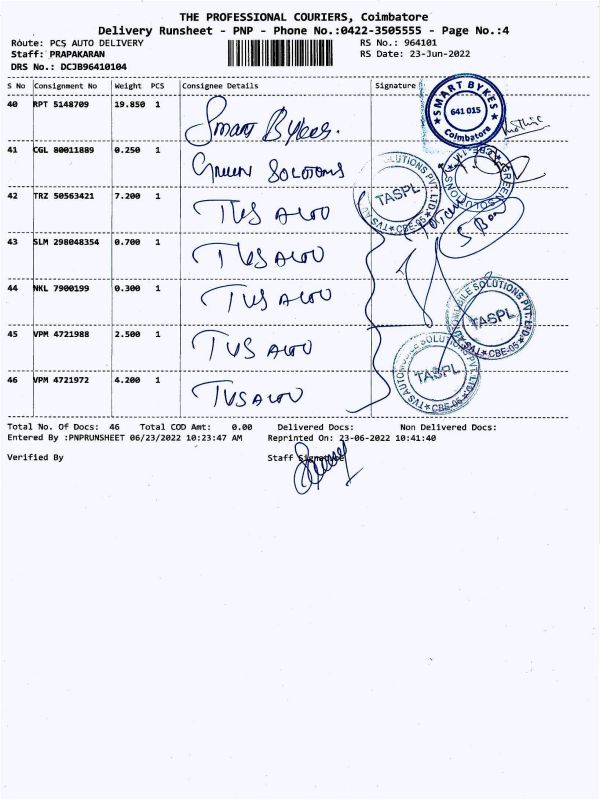 THE PROFESSIONAL COURIERS, Coimbatore
Delivery Runsheet - PNP - Phone No.:0422-3505555 - Page No.:4
Route: PCS AUTO DELIVERY
RS No.: 964101
Staff: PRAPAKARAN
RS Date: 23-Jun-2022
DRS No.: DCJB96410104
S No Consignment No Weight PCS Consignee Details Signature
40 RPT 5148709 19.850 1 Smart Bykes.
SMART BYKES 641 015 Coimbatore
41 CGL 80011889 0.250 1 Green Solutions
42 TRZ 50563421 7.200 1 TVS AUTO
TASPL CBE-05
43 SLM 298048354 0.700 1 TVS AUTO
44 NKL 7900199 0.300 1 TVS AUTO
TASPL CBE-05
45 VPM 4721988 2.500 1 TVS AUTO
46 VPM 4721972 4.200 1 TVS AUTO
TVS AUTOMOBILE SOLUTIONS PVT. LTD TASPL CBE-05
Total No. Of Docs: 46 Total COD Amt: 0.00 Delivered Docs: Non Delivered Docs:
Entered By :PNPRUNSHEET 06/23/2022 10:23:47 AM Reprinted On: 23-06-2022 10:41:40
Verified By Staff Signature